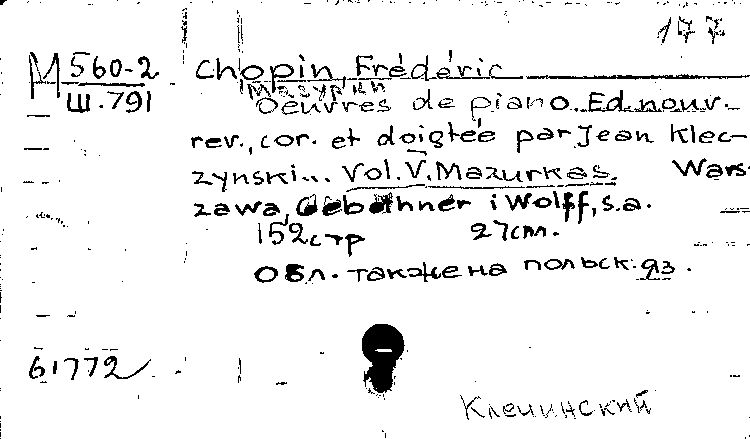 177
М 560-2 Chopin, Frédéric
Ш.791 Мазурки
Oeuvres de piano. Ed. nouv.
rev., cor. et doigtée par Jean Klec-
zynski... Vol. V. Mazurkas. Wars-
zawa, Gebethner i Wolff, s.a.
152 стр 27 см.
Обл. также на польск. яз.
61772
Клечинский